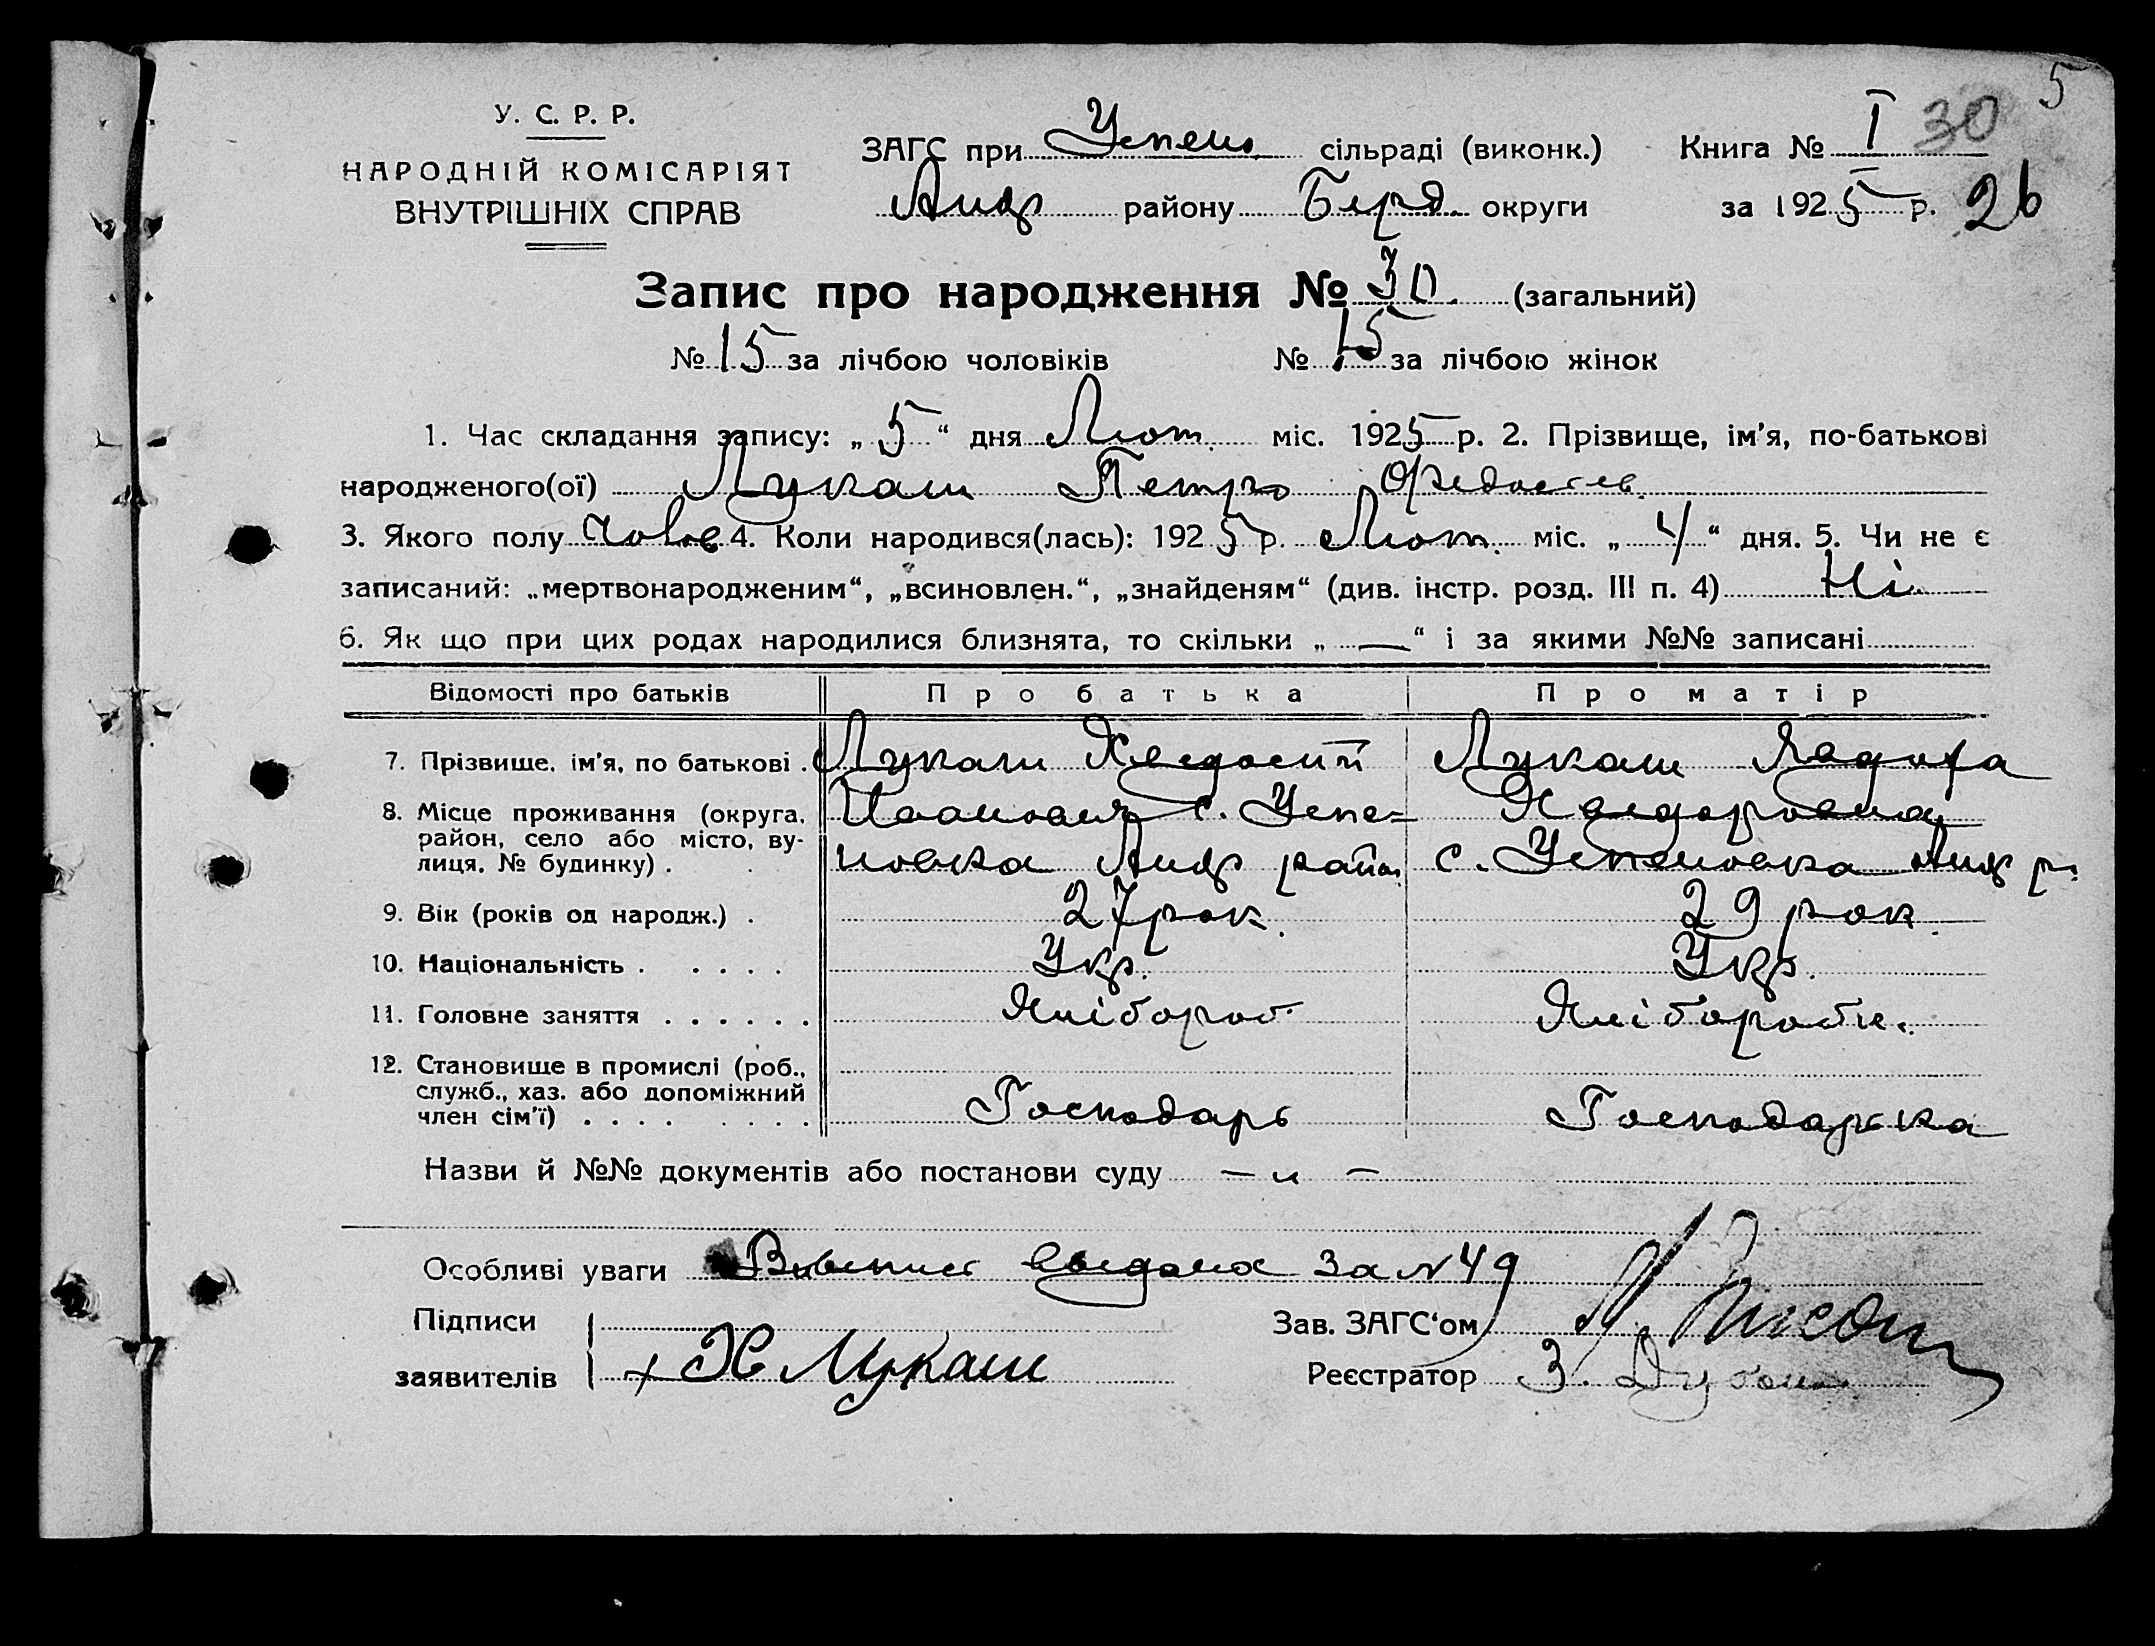 5
У. С. Р. Р.
НАРОДНІЙ КОМІСАРІЯТ
ВНУТРІШНІХ СПРАВ
ЗАГС при Успен. сільраді (виконк.) Книга № I 30
району Берд. округи за 1925 р. 26
Запис про народження № 30. (загальний)
№ 15 за лічбою чоловіків № 15 за лічбою жінок
1. Час складання запису: „ 5 “ дня Лют. міс. 1925 р. 2. Прізвище, ім'я, по-батькові
народженого(ої) Лукаш Петро
3. Якого полу Чолов 4. Коли народився(лась): 1925 р. Лют. міс. „ 4 “ дня. 5. Чи не є
записаний: „мертвонародженим“, „всиновлен.“, „знайденям“ (див. інстр. розд. III п. 4) Ні.
6. Як що при цих родах народилися близнята, то скільки „ — “ і за якими №№ записані
Відомості про батьків Про батька Про матір
7. Прізвище, ім'я, по батькові . Лукаш Хведосий Лукаш
8. Місце проживання (округа, район, село або місто, вулиця, № будинку) .
Иванович с. Успе-
новка район. Хведоровна
с. Успеновка р.
9. Вік (років од народж.) . 27 рок. 29 рок.
10. Національність . . . . . Укр. Укр.
11. Головне заняття . . . . . . Хлібороб. Хлібороби.
12. Становище в промислі (роб., служб., хаз. або допоміжний член сім'ї) . . . . . . . . Господарь Господарька
Назви й №№ документів або постанови суду — „ —
Особливі уваги выдана за № 49
Підписи
заявителів + Х Лукаш
Зав. ЗАГС‘ом
Реєстратор З.